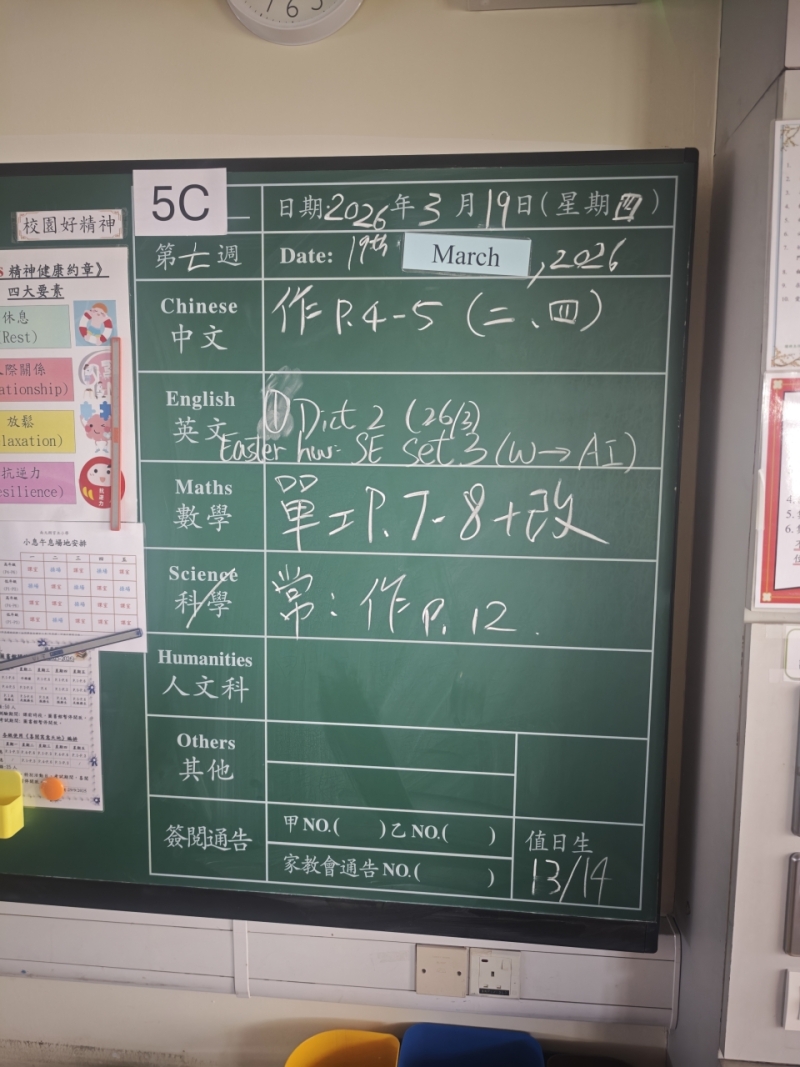 5C
日期:2026年3月19日(星期四)
第七週 Date: 19th March, 2026
校園好精神
精神健康約章》
四大要素
休息
(Rest)
人際關係
放鬆
抗逆力
Chinese
中文
作 P.4-5 (二、四)
English
英文
① Dict 2 (26/3)
Easter hw: SE Set 3 (W→AI)
Maths
數學
單工P.7-8+改
Science
科學
常:作 P.12.
Humanities
人文科
Others
其他
簽閱通告
甲NO.( )乙NO.( )
家教會通告NO.( )
值日生
13/14
小息午息場地安排